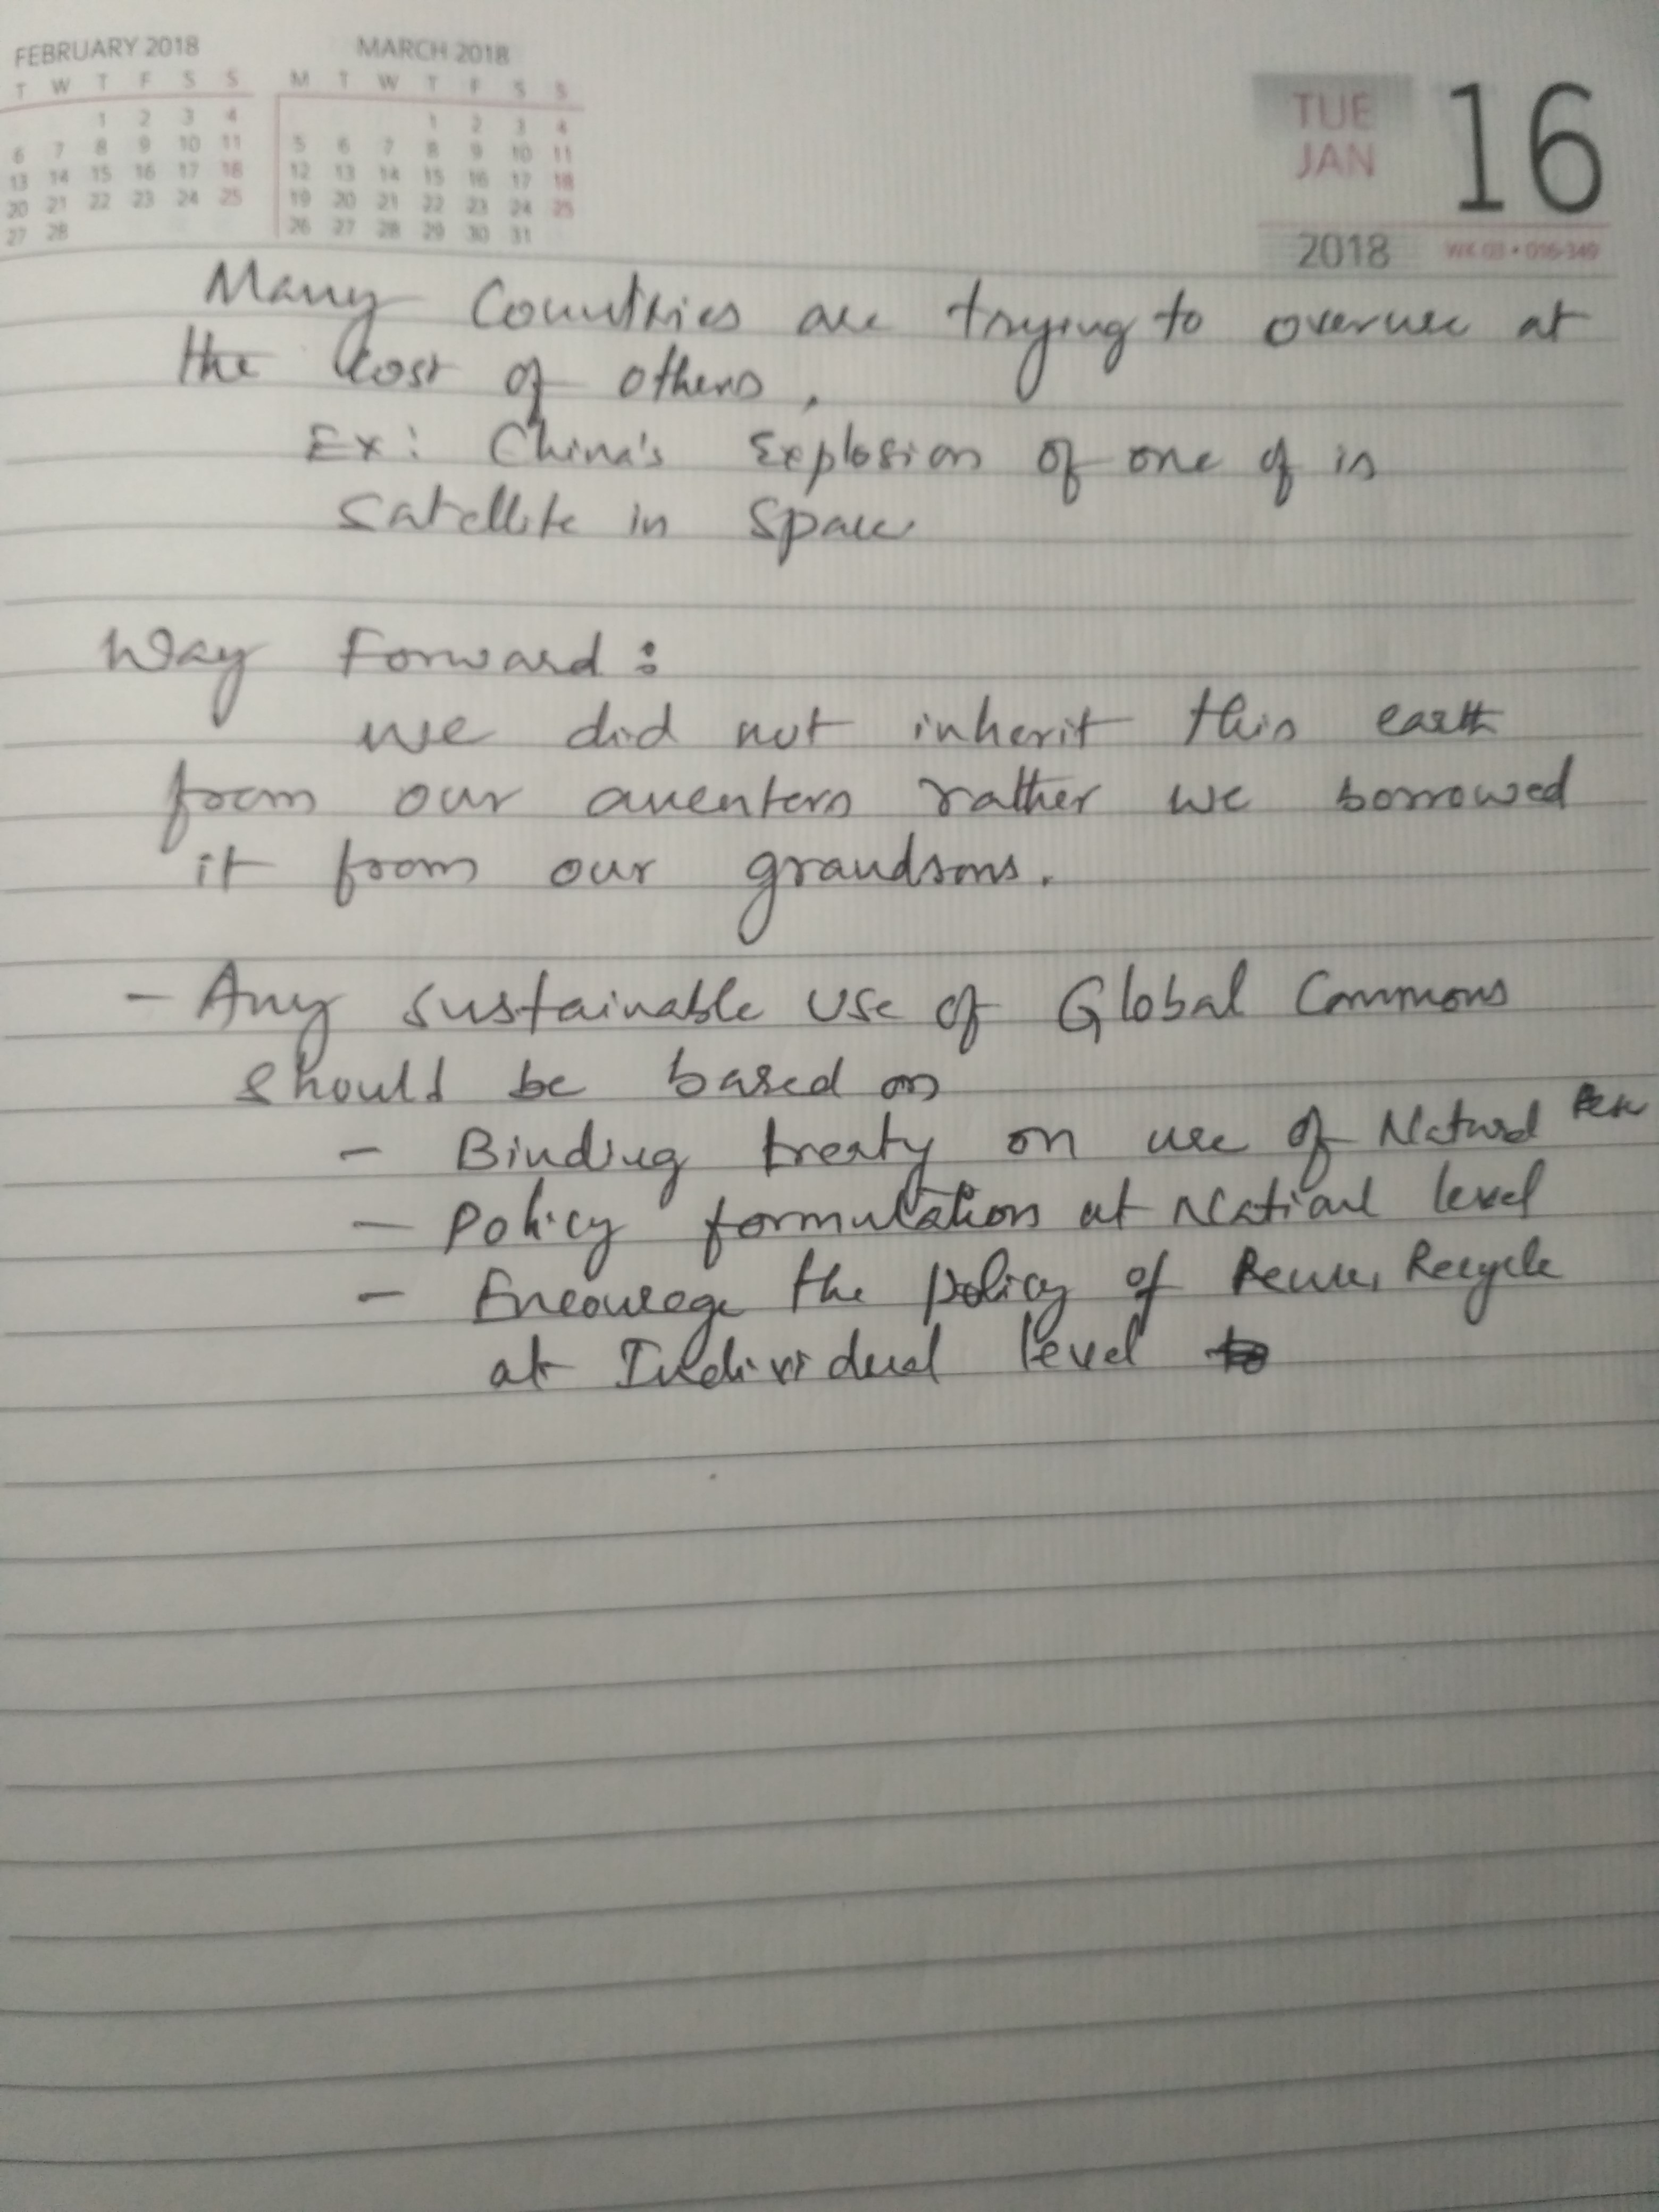 FEBRUARY 2018 MARCH 2018
T W T F S S M T W T F S S
1 2 3 4 1 2 3 4
6 7 8 9 10 11 5 6 7 8 9 10 11
13 14 15 16 17 18 12 13 14 15 16 17 18
20 21 22 23 24 25 19 20 21 22 23 24 25
27 28 26 27 28 29 30 31
TUE
JAN
16
2018 WK 03 • 016-349
Many Countries are trying to overuse at
the cost of others.
Ex: China's Explosion of one of is
satellite in Space
Way Forward:
we did not inherit this earth
from our ancestors rather we borrowed
it from our grandsons.
- Any sustainable use of Global Commons
should be based on
- Binding treaty on use of Natural
- Policy formulation at National level
- Encourage the policy of Reuse, Recycle
at Individual level